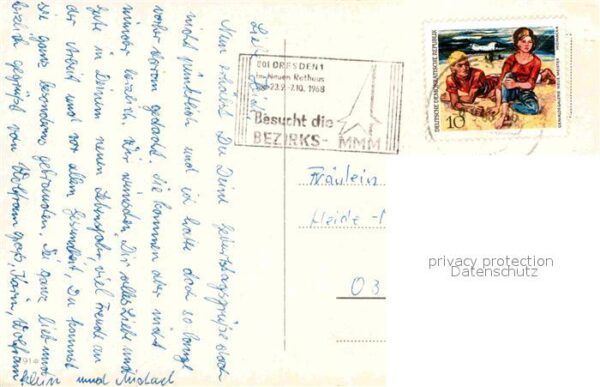 Liebe Heide!
Nun erhältst Du Deine Geburtstagsgrüße doch
nicht pünktlich und ich hatte doch so lange
vorher daran gedacht. Sie kommen aber nicht
minder herzlich. Wir wünschen Dir alles Liebe und
Gute in Deinem neuen Lebensjahr, viel Freude an
der Arbeit und vor allem Gesundheit, Du kannst
sie ganz besonders gebrauchen. Sei ganz lieb und
herzlich gegrüßt von Wolfram groß, Karin, Wolfram
klein und Michael
801 DRESDEN 1
Im Neuen Rathaus
23.9.-7.10.1968
Besucht die
BEZIRKS-MMM
DEUTSCHE DEMOKRATISCHE REPUBLIK
10
Fräulein
Heide-
privacy protection
Datenschutz